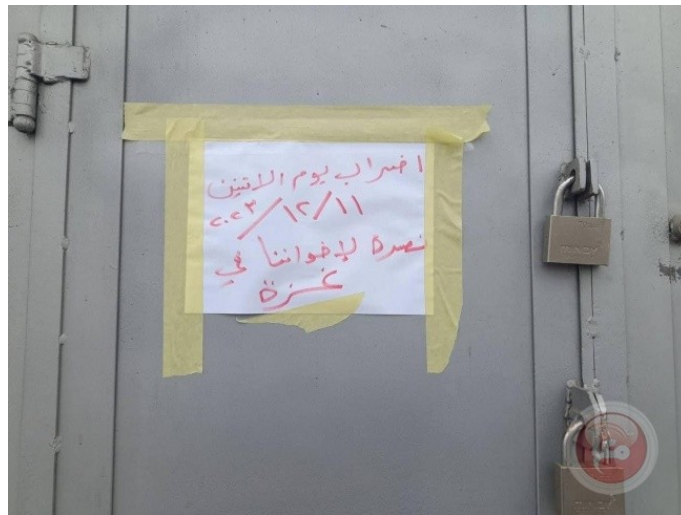 اضراب يوم الاثنين
٢٠٢٣/١٢/١١
نصرة لإخواننا في
غزة